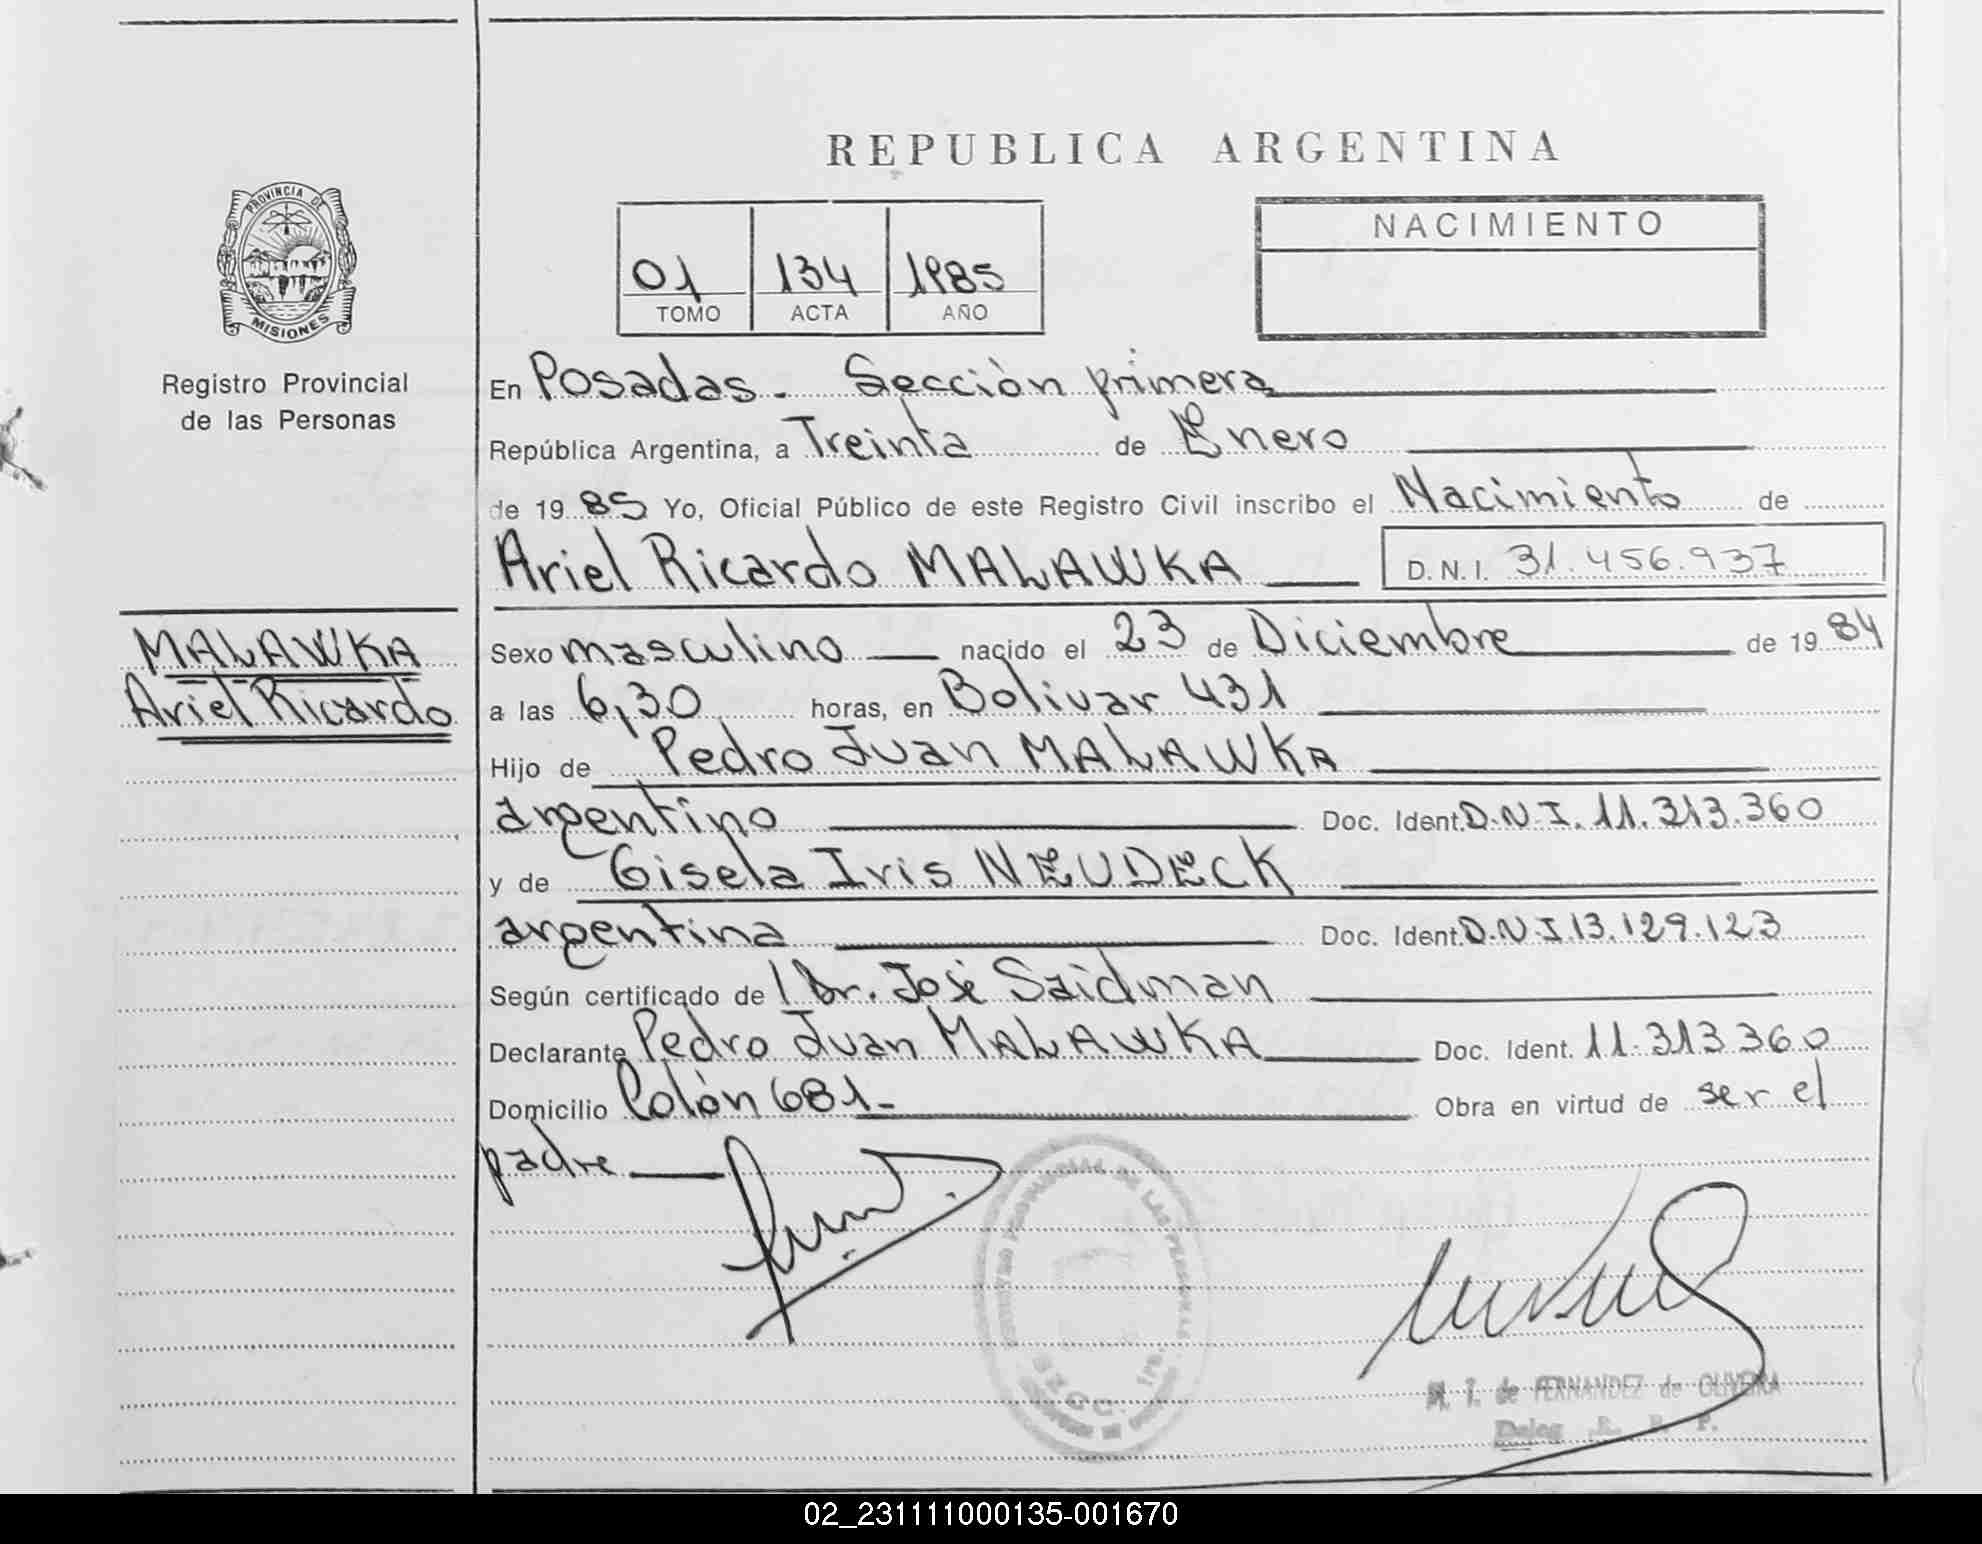 REPUBLICA ARGENTINA
PROVINCIA DE
MISIONES
Registro Provincial
de las Personas
01 134 1985
TOMO ACTA AÑO
NACIMIENTO
En Posadas. Sección primera
República Argentina, a Treinta de Enero
de 1985 Yo, Oficial Público de este Registro Civil inscribo el Nacimiento de
Ariel Ricardo MALAWKA D.N.I. 31.456.937
MALAWKA
Ariel Ricardo
Sexo masculino nacido el 23 de Diciembre de 1984
a las 6,30 horas, en Bolivar 431
Hijo de Pedro Juan MALAWKA
argentino Doc. Ident. D.N.I. 11.313.360
y de Gisela Iris NEUDECK
argentina Doc. Ident. D.N.I. 13.129.123
Según certificado de / Dr. José Saidman
Declarante Pedro Juan MALAWKA Doc. Ident. 11.313360
Domicilio Colón 681- Obra en virtud de ser el
padre
M. T. de FERNANDEZ de OLIVEIRA
Deleg. R. P. P.
02_231111000135-001670